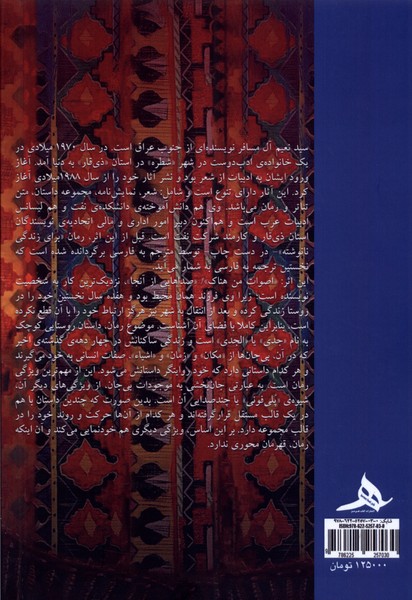 سید نعیم آل مسافر نویسنده‌ای از جنوب عراق است. در سال ۱۹۷۰ میلادی در
یک خانواده‌ی ادب‌دوست در شهر «شطره» در استان «ذی‌قار» به دنیا آمد. آغاز
ورود ایشان به ادبیات از شعر بود و نشر آثار خود را از سال ۱۹۸۸ میلادی آغاز
کرد. این آثار دارای تنوع است و شامل: شعر، نمایش‌نامه، مجموعه داستان، متن
تئاتر و رمان می‌باشد. وی هم دانش آموخته‌ی دانشکده‌ی نفت و هم لیسانس
ادبیات عرب است و هم‌اکنون دبیر امور اداری و مالی اتحادیه‌ی نویسندگان
استان ذی‌قار و کارمند شرکت نفت است. قبل از این اثر، رمان «برای زندگی
نانوشته» در دست چاپ، توسط مترجم به فارسی برگردانده شده است که
نخستین ترجمه به فارسی به شمار می‌آید.
این اثر: «أصوات من هناک»: «صداهایی از آنجا»، نزدیک‌ترین کار به شخصیت
نویسنده است زیرا وی فرزند همان محیط بود و هفده سال نخستین خود را در
روستا زندگی کرده و بعد از انتقال به شهر مرکز ارتباط خود را با آن قطع نکرده
است. بنابراین کاملا با فضای آن آشناست. موضوع رمان، داستان روستایی کوچک
به نام «جدی» یا الجدی است و زندگی ساکنانش در چهار دهه‌ی گذشته‌ی اخیر
که در آن بی‌جان‌ها از «مکان» و «زمان» و «اشیاء»، صفات انسانی به خود می‌گیرند
و هر کدام داستانی دارد که خود روایتگر داستانش می‌شود. این از مهم‌ترین ویژگی
رمان است. به عبارتی جان‌بخشی به موجودات بی‌جان. از ویژگی‌های دیگر آن،
شیوه‌ی «پلی‌فونی» یا چندصدایی آن است. بدین صورت که چندین داستان با هم
در یک قالب مستقل قرار گرفته‌اند و هر کدام از آن‌ها حرکت و روند خود را در
قالب مجموعه دارد. بر این اساس، ویژگی دیگری هم خودنمایی می‌کند و آن اینکه
رمان، قهرمان محوری ندارد.
ISBN:978-622-5257-03-0
9 786225 257030
۱۲۵۰۰۰ تومان